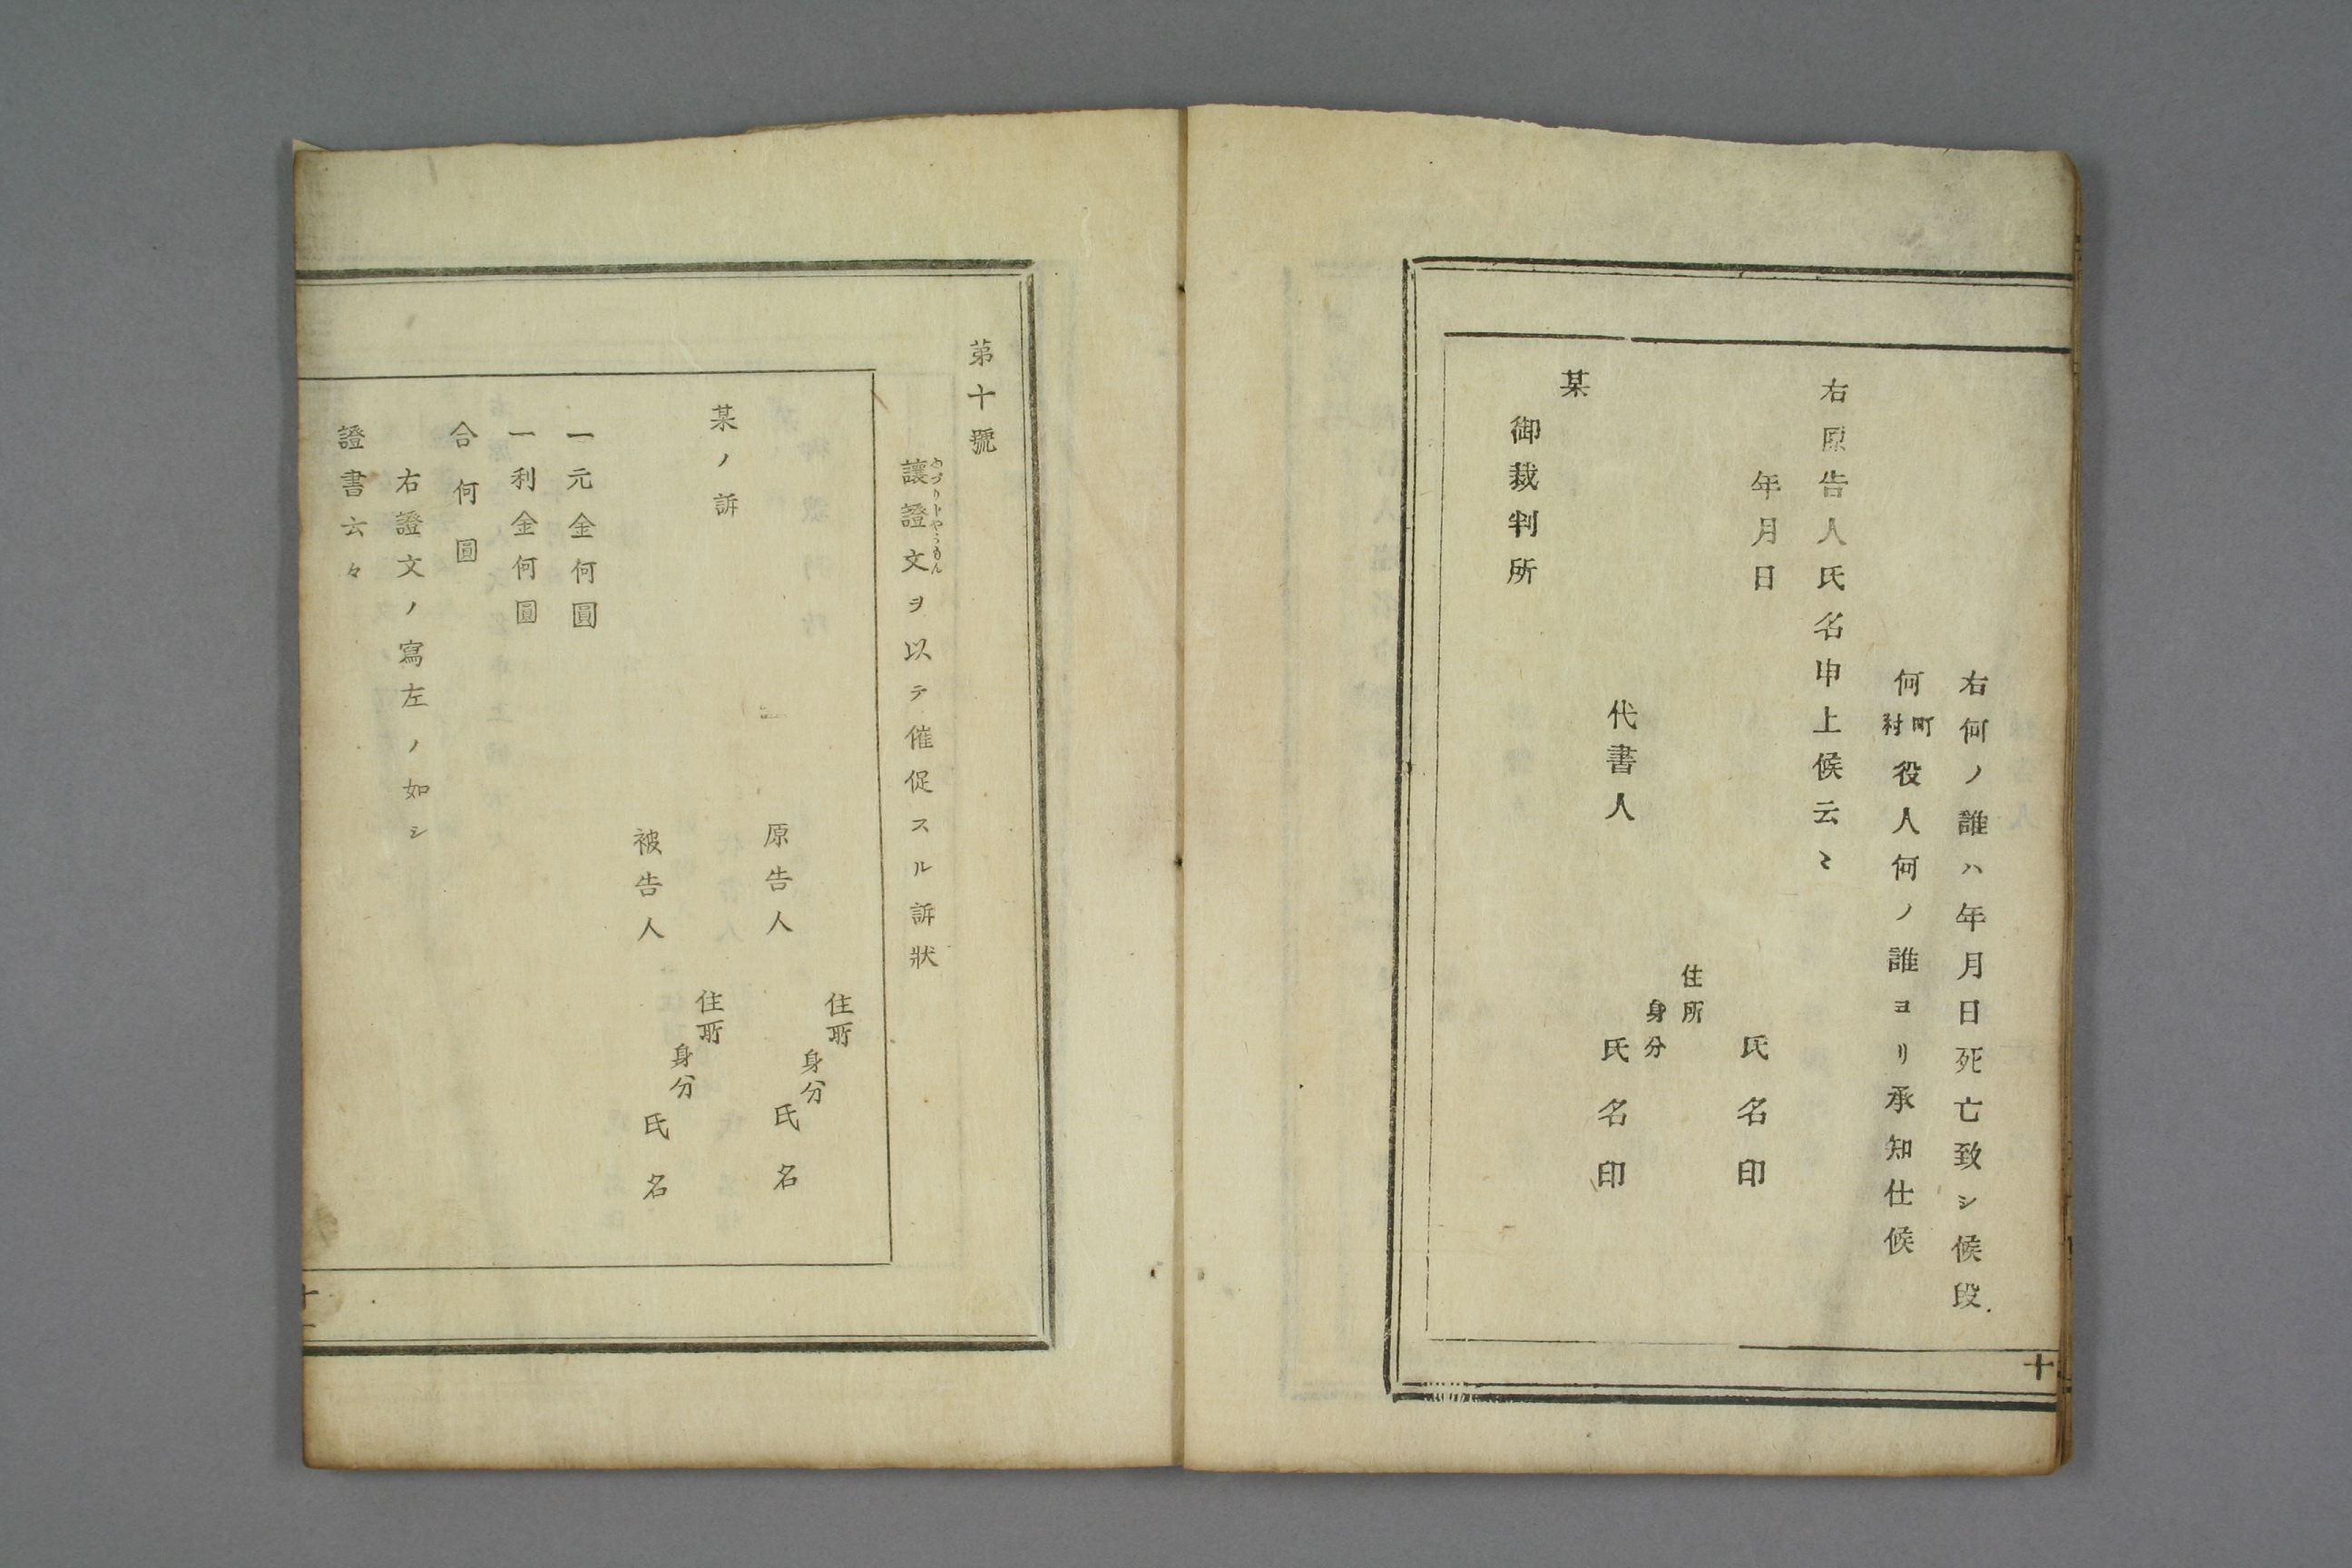 右何ノ誰ハ年月日死亡致シ候段
何町村役人何ノ誰ヨリ承知仕候
右原告人氏名申上候云〻
年月日
氏名印
住所
身分
代書人 氏名印
某
御裁判所
十
第十號
讓證文ヲ以テ催促スル訴狀
ゆづりしやうもん
住所
身分
原告人 氏名
某ノ訴
住所
身分
被告人 氏名
一元金何圓
一利金何圓
合何圓
右證文ノ寫左ノ如シ
證書云々